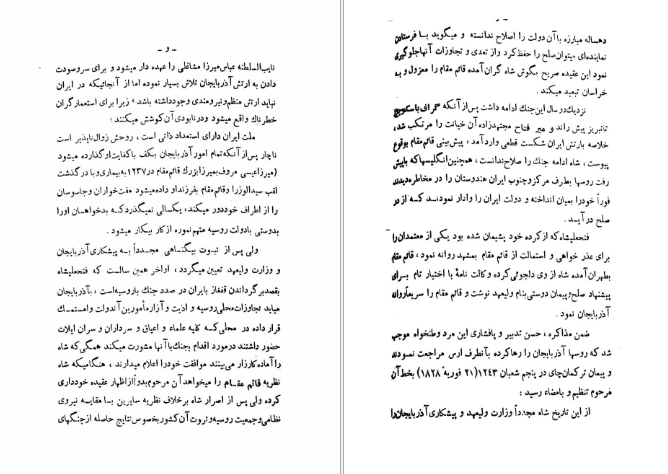 - و -
نایب‌السلطنه عباس‌میرزا مشاغلی را عهده دار میشود و برای سروصورت
دادن به ارتش آذربایجان تلاش بسیار نموده اما از آنجائیکه در ایران
نباید ارتش منظم و نیرومندی وجود داشته باشد ، زیرا برای استعمارگران
خطرناك واقع میشود و در نابودی آن کوشش میکنند ؛
ملت ایران دارای استعداد ذاتی است ، روحش زوال ناپذیر است
ناچار پس از آنکه تمام امور آذربایجان بکف با کفایت او گذارده میشود
(میرزا عیسی معروف بمیرزا بزرك قائم‌مقام در ۱۲۳۷ به بیماری وبا درگذشت
لقب سیدالوزرا و قائم مقام بفرزند او داده میشود مفت‌خواران و جاسوسان
را از اطراف خود دور میکند، یکسالی نمیگذرد که بدخواهان او را
بدوستی با دولت روسیه متهم نموده از کار بیکار میشود .
ولی پس از ثبوت بیگناهی مجدداً به پیشکاری آذربایجان
و وزارت ولیعهد تعیین میگردد ، اواخر همین سالست که فتحعلیشاه
بقصد برگرداندن قفقاز بایران در صدد جنك با روسیه است ، بآذربایجان
میاید تجاوزات محلی روسیه و اذیت و آزار مأمورین آندولت را مستمسك
قرار داده در محلی که کلیه علماء و اعیان و سرداران و سران ایلات
حضور داشتند در مورد اقدام بجنك با آنها مشورت میکند همگی که شاه
را آماده کارزار می‌بینند موافقت خود را اعلام میدارند ، هنگامیکه شاه
نظریه قائم مقام را میخواهد آن مرحوم بدواً از اظهار عقیده خودداری
کرده ولی پس از اصرار شاه برخلاف نظریه سایرین با مقایسه نیروی
نظامی و جمعیت روسیه و ثروت آن کشور بخصوص نتایج حاصله از جنگهای
ده‌ساله مبارزه با آن دولت را اصلاح ندانسته و میگوید با فرستادن
نماینده‌ای میتوان صلح را حفظ کرد و از تعدی و تجاوزات آنها جلوگیری
نمود این عقیده صریح بگوش شاه گران آمده قائم مقام را معزول و به
خراسان تبعید میکند .
نزدیك دو سال این جنك ادامه داشت پس از آنکه گراف پاسکویچ
تا تبریز پیش راند و میر فتاح مجتهدزاده آن خیانت را مرتکب شد،
خلاصه بارتش ایران شکست قطعی وارد آمد ، پیش‌بینی قائم‌مقام بوقوع
پیوست ، شاه ادامه جنك را صلاح ندانست ، همچنین انگلیسها که با پیش
رفت روسها بطرف مرکز و جنوب ایران هندوستان را در مخاطره دیدند
فوراً خود را بمیان انداخته و دولت ایران را وادار نمودند که از در
صلح در آید .
فتحعلیشاه که از کرده خود پشیمان شده بود یکی از معتمدان را
برای عذر خواهی و استمالت از قائم مقام بمشهد روانه نمود ، قائم مقام
بطهران آمده شاه از وی دلجوئی کرده وکالت نامهٔ با اختیار تام برای
پیشنهاد صلح و پیمان دوستی بنام ولیعهد نوشت و قائم مقام را سریعاً روانه
آذربایجان نمود .
ضمن مذاکره ، حسن تدبیر و پافشاری این مرد وطنخواه موجب
شد که روسها آذربایجان را رها کرده بآنطرف ارس مراجعت نمودند
و پیمان ترکمان‌چای در پنجم شعبان ۱۲۴۳ (۲۱ فوریه ۱۸۲۸) بخط آن
مرحوم تنظیم و بامضاء رسید :
از این تاریخ شاه مجدداً وزارت ولیعهد و پیشکاری آذربایجان را